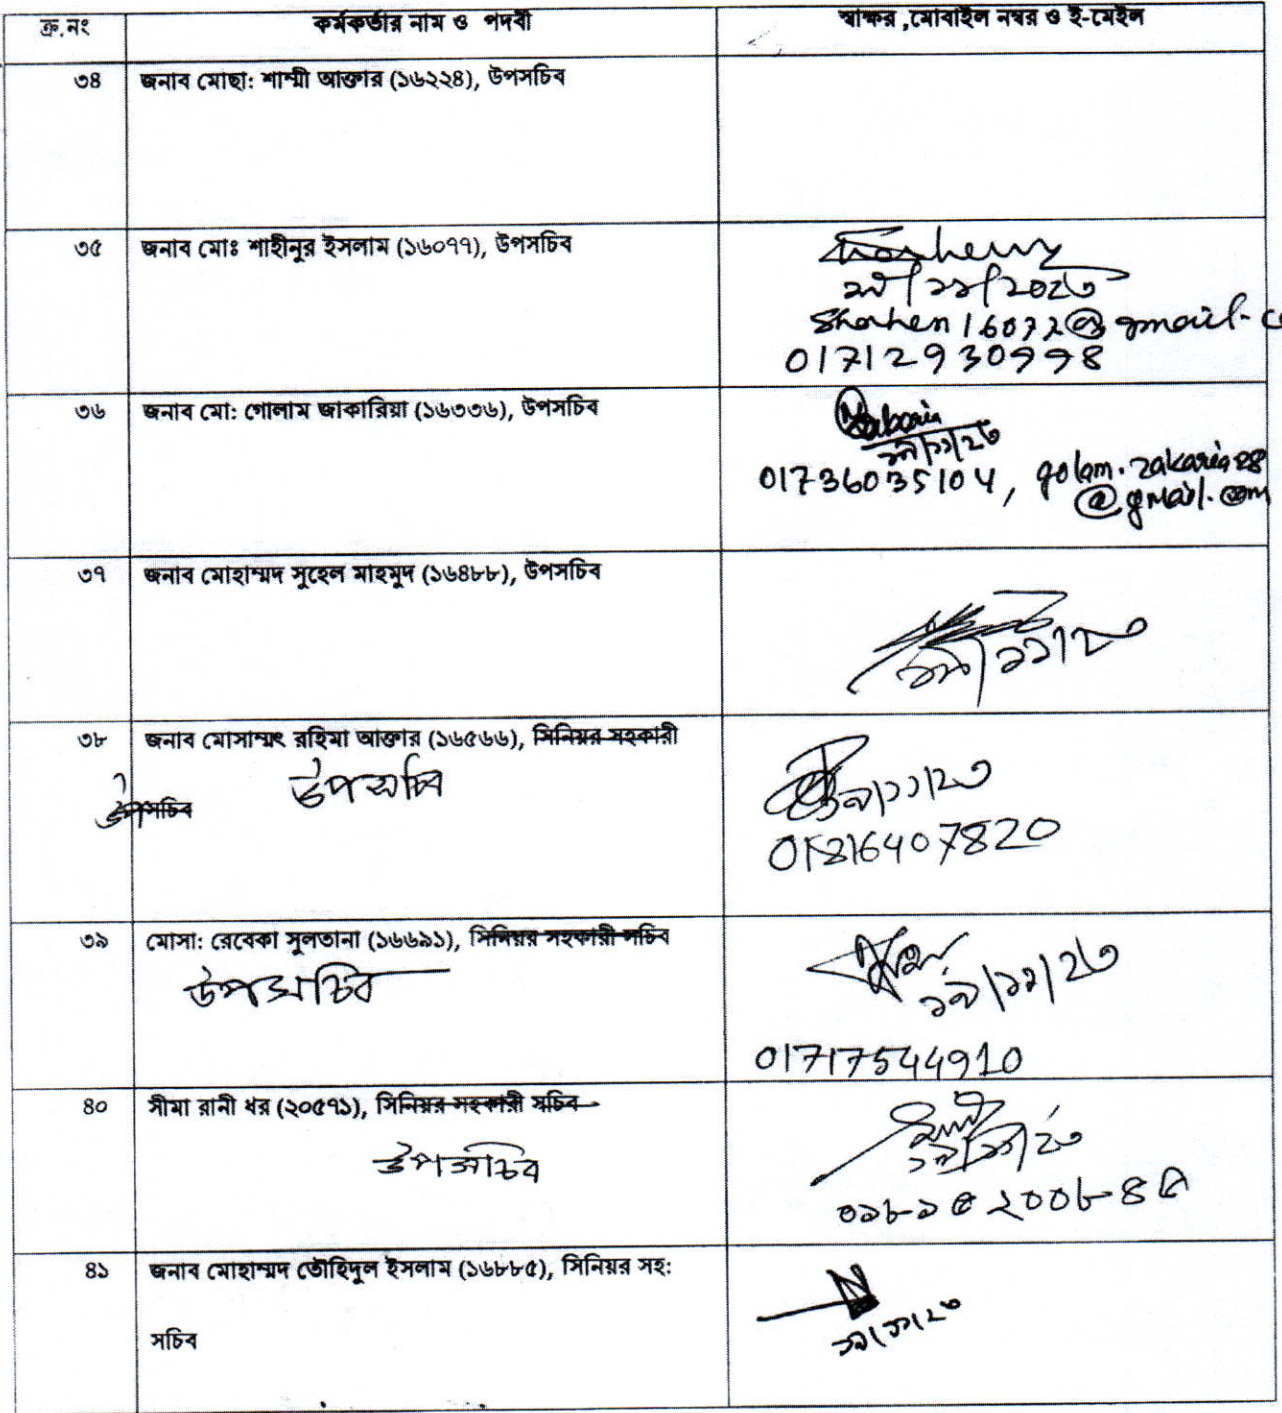 ক্র.নং কর্মকর্তার নাম ও পদবী স্বাক্ষর ,মোবাইল নম্বর ও ই-মেইল
৩৪ জনাব মোছা: শাম্মী আক্তার (১৬২২৪), উপসচিব
৩৫ জনাব মোঃ শাহীনুর ইসলাম (১৬০৭৭), উপসচিব
01712930998
৩৬ জনাব মো: গোলাম জাকারিয়া (১৬৩৩৬), উপসচিব
01736035104, golam.zakaria28
@gmail.com
৩৭ জনাব মোহাম্মদ সুহেল মাহমুদ (১৬৪৮৮), উপসচিব
৩৮ জনাব মোসাম্মৎ রহিমা আক্তার (১৬৫৬৬), সিনিয়র সহকারী
উপসচিব
সচিব
01816407820
৩৯ মোসা: রেবেকা সুলতানা (১৬৬৯১), সিনিয়র সহকারী সচিব
উপসচিব
১৯/১১/২৩
01717544910
৪০ সীমা রানী ধর (২০৫৭১), সিনিয়র সহকারী সচিব
উপসচিব
০১৮১৫২০০৮৪৫
৪১ জনাব মোহাম্মদ তৌহিদুল ইসলাম (১৬৮৮৫), সিনিয়র সহ:
সচিব
১৯/১১/২৩